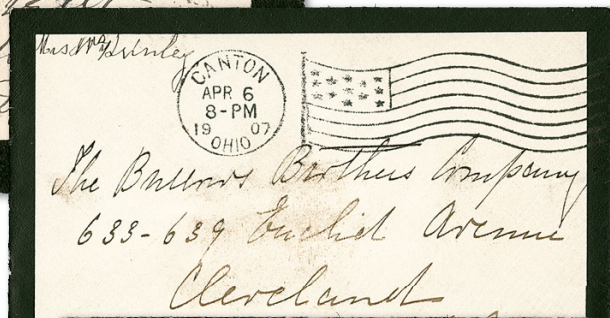 Mrs Wm McKinley
CANTON
APR 6
8-PM
1907
OHIO
The Burrows Brothers Company
633-639 Euclid Avenue
Cleveland